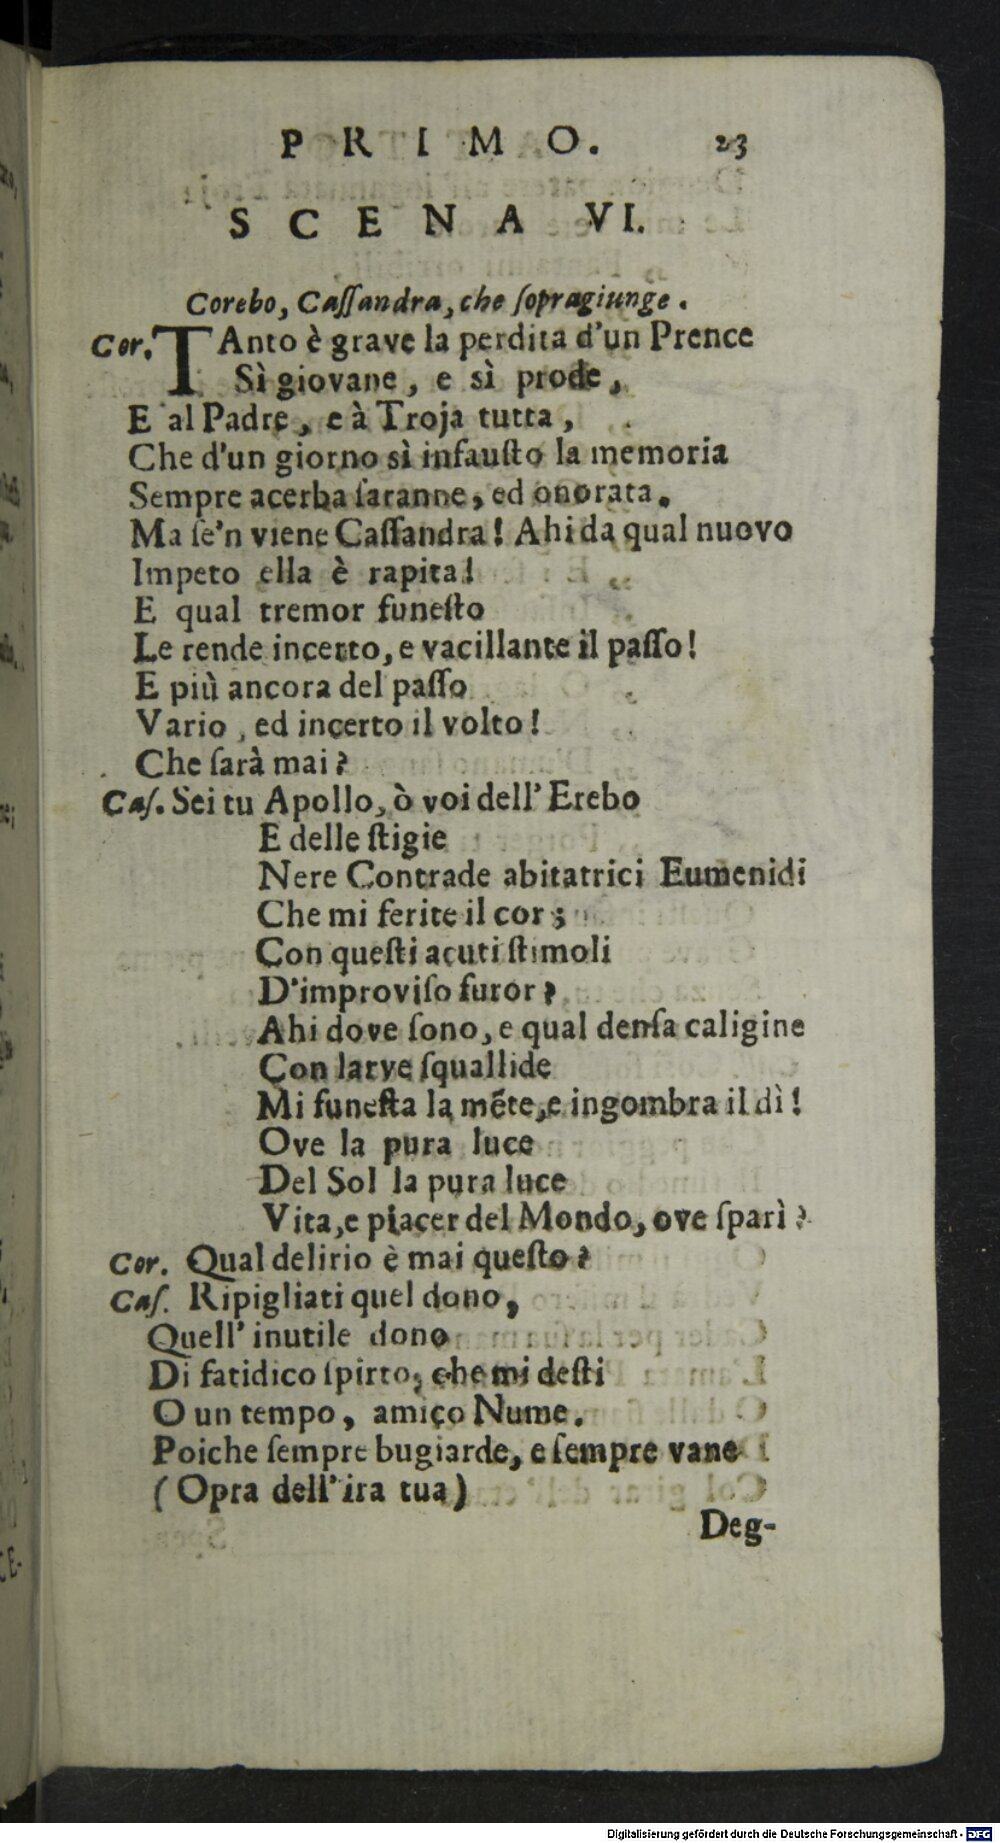 PRIMO. 23
SCENA VI.
Corebo, Caſſandra, che ſopragiunge.
Cor. TAnto è grave la perdita d'un Prence
Sì giovane, e sì prode,
E al Padre, e à Troja tutta,
Che d'un giorno sì infauſto la memoria
Sempre acerba ſaranne, ed onorata.
Ma ſe'n viene Caſſandra! Ahi da qual nuovo
Impeto ella è rapita!
E qual tremor funeſto
Le rende incerto, e vacillante il paſſo!
E più ancora del paſſo
Vario, ed incerto il volto!
Che ſarà mai?
Caſ. Sei tu Apollo, ò voi dell' Erebo
E delle ſtigie
Nere Contrade abitatrici Eumenidi
Che mi ferite il cor;
Con queſti acuti ſtimoli
D'improviſo furor?
Ahi dove ſono, e qual denſa caligine
Con larve ſquallide
Mi funeſta la mẽte, e ingombra il dì!
Ove la pura luce
Del Sol la pura luce
Vita, e piacer del Mondo, ove ſparì?
Cor. Qual delirio è mai queſto?
Caſ. Ripigliati quel dono,
Quell' inutile dono
Di fatidico ſpirto, che mi deſti
O un tempo, amico Nume.
Poiche ſempre bugiarde, e ſempre vane
(Opra dell' ira tua)
Deg-
Digitalisierung gefördert durch die Deutsche Forschungsgemeinschaft - DFG